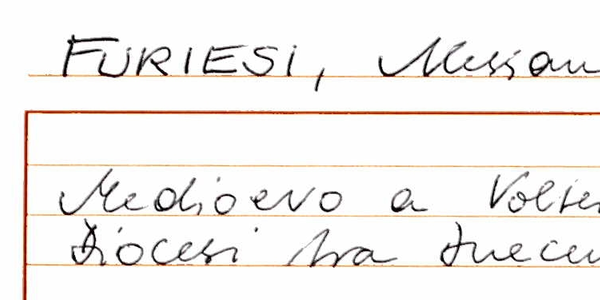 FURIESI, Alessan
Medioevo a Volter
diocesi tra duecen